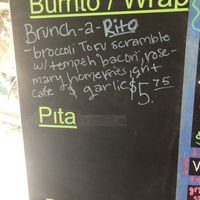 Burrito / Wrap
Brunch-a-Rito
-broccoli Tofu scramble
w/ tempeh "bacon", rose-
mary homefries, grit
cafe garlic $5.75
Pita